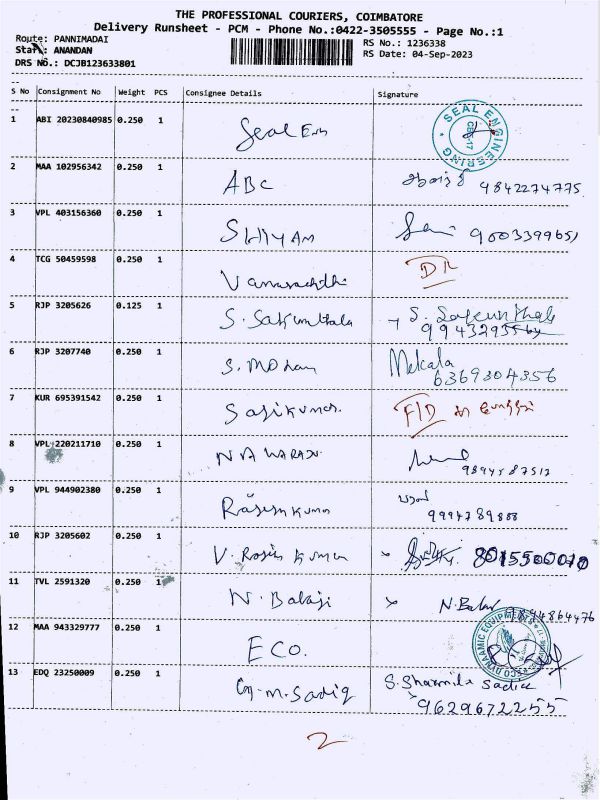 THE PROFESSIONAL COURIERS, COIMBATORE
Delivery Runsheet - PCM - Phone No.:0422-3505555 - Page No.:1
Route: PANNIMADAI
RS No.: 1236338
Staff: ANANDAN
RS Date: 04-Sep-2023
DRS No.: DCJB123633801
S No Consignment No Weight PCS Consignee Details Signature
1 ABI 20230840985 0.250 1 Seal Eng
SEAL ENGINEERING CBE-17
2 MAA 102956342 0.250 1 ABC 9842274775
3 VPL 403156360 0.250 1 SHYAM 9003399651
4 TCG 50459598 0.250 1 DR
5 RJP 3205626 0.125 1 S. Sakunthala S. Sakunthala
6 RJP 3207740 0.250 1 S. Mohan Mekala
6369304356
7 KUR 695391542 0.250 1 Sasikumar F/D
8 VPL 220211710 0.250 1
9 VPL 944902380 0.250 1 Rajesh Kumar
9994789888
10 RJP 3205602 0.250 1 V. Rosin Kumar 8015500010
11 TVL 2591320 1 N. Balaji N. Balaji
9844864476
12 MAA 943329777 0.250 1 ECO.
13 EDQ 23250009 0.250 1 M. Sadiq S. Sharmila Sadiq
9629672255
2